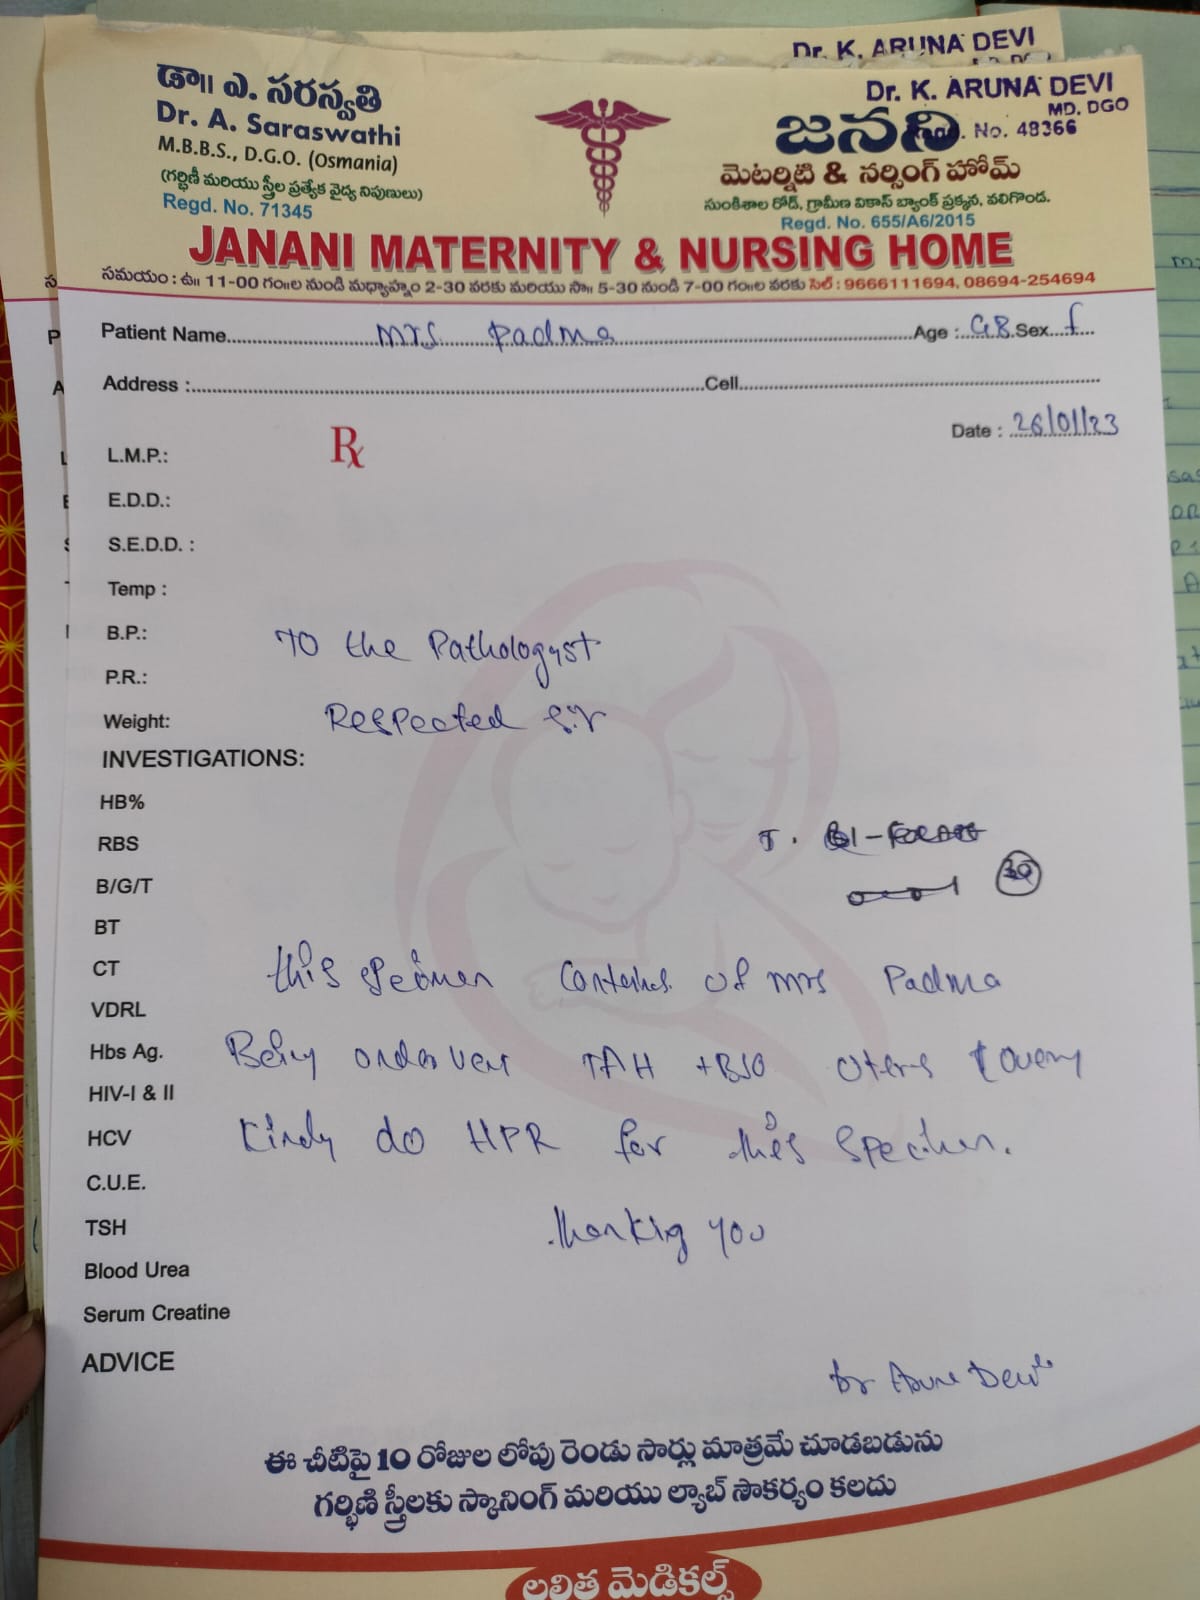 Dr. K. ARUNA DEVI
డా॥ ఎ. సరస్వతి
Dr. A. Saraswathi
M.B.B.S., D.G.O. (Osmania)
(గర్భిణీ మరియు స్త్రీల ప్రత్యేక వైద్య నిపుణులు)
Regd. No. 71345
Dr. K. ARUNA DEVI
MD. DGO
No. 48366
జనని
మెటర్నిటి & నర్సింగ్ హోమ్
సుంకిశాల రోడ్, గ్రామీణ వికాస్ బ్యాంక్ ప్రక్కన, వలిగొండ.
Regd. No. 655/A6/2015
JANANI MATERNITY & NURSING HOME
సమయం : ఉ॥ 11-00 గం॥ల నుండి మధ్యాహ్నం 2-30 వరకు మరియు సా॥ 5-30 నుండి 7-00 గం॥ల వరకు సెల్ : 9666111694, 08694-254694
Patient Name Mrs. Padma Age : Sex f
Address : Cell
Date : 26/01/23
L.M.P.: Rx
E.D.D.:
S.E.D.D. :
Temp :
B.P.:
To the Pathologyst
P.R.:
Weight: Respected Sir
INVESTIGATIONS:
HB%
RBS
B/G/T 30
BT
CT this Contains of Mrs Padma
VDRL
Hbs Ag. Being TAH +BSO
HIV-I & II
HCV Kindly do HPR for this Specimen.
C.U.E.
TSH thanking you
Blood Urea
Serum Creatine
ADVICE
Dr Aruna Devi
ఈ చీటిపై 10 రోజుల లోపు రెండు సార్లు మాత్రమే చూడబడును
గర్భిణి స్త్రీలకు స్కానింగ్ మరియు ల్యాబ్ సౌకర్యం కలదు
లలిత మెడికల్స్